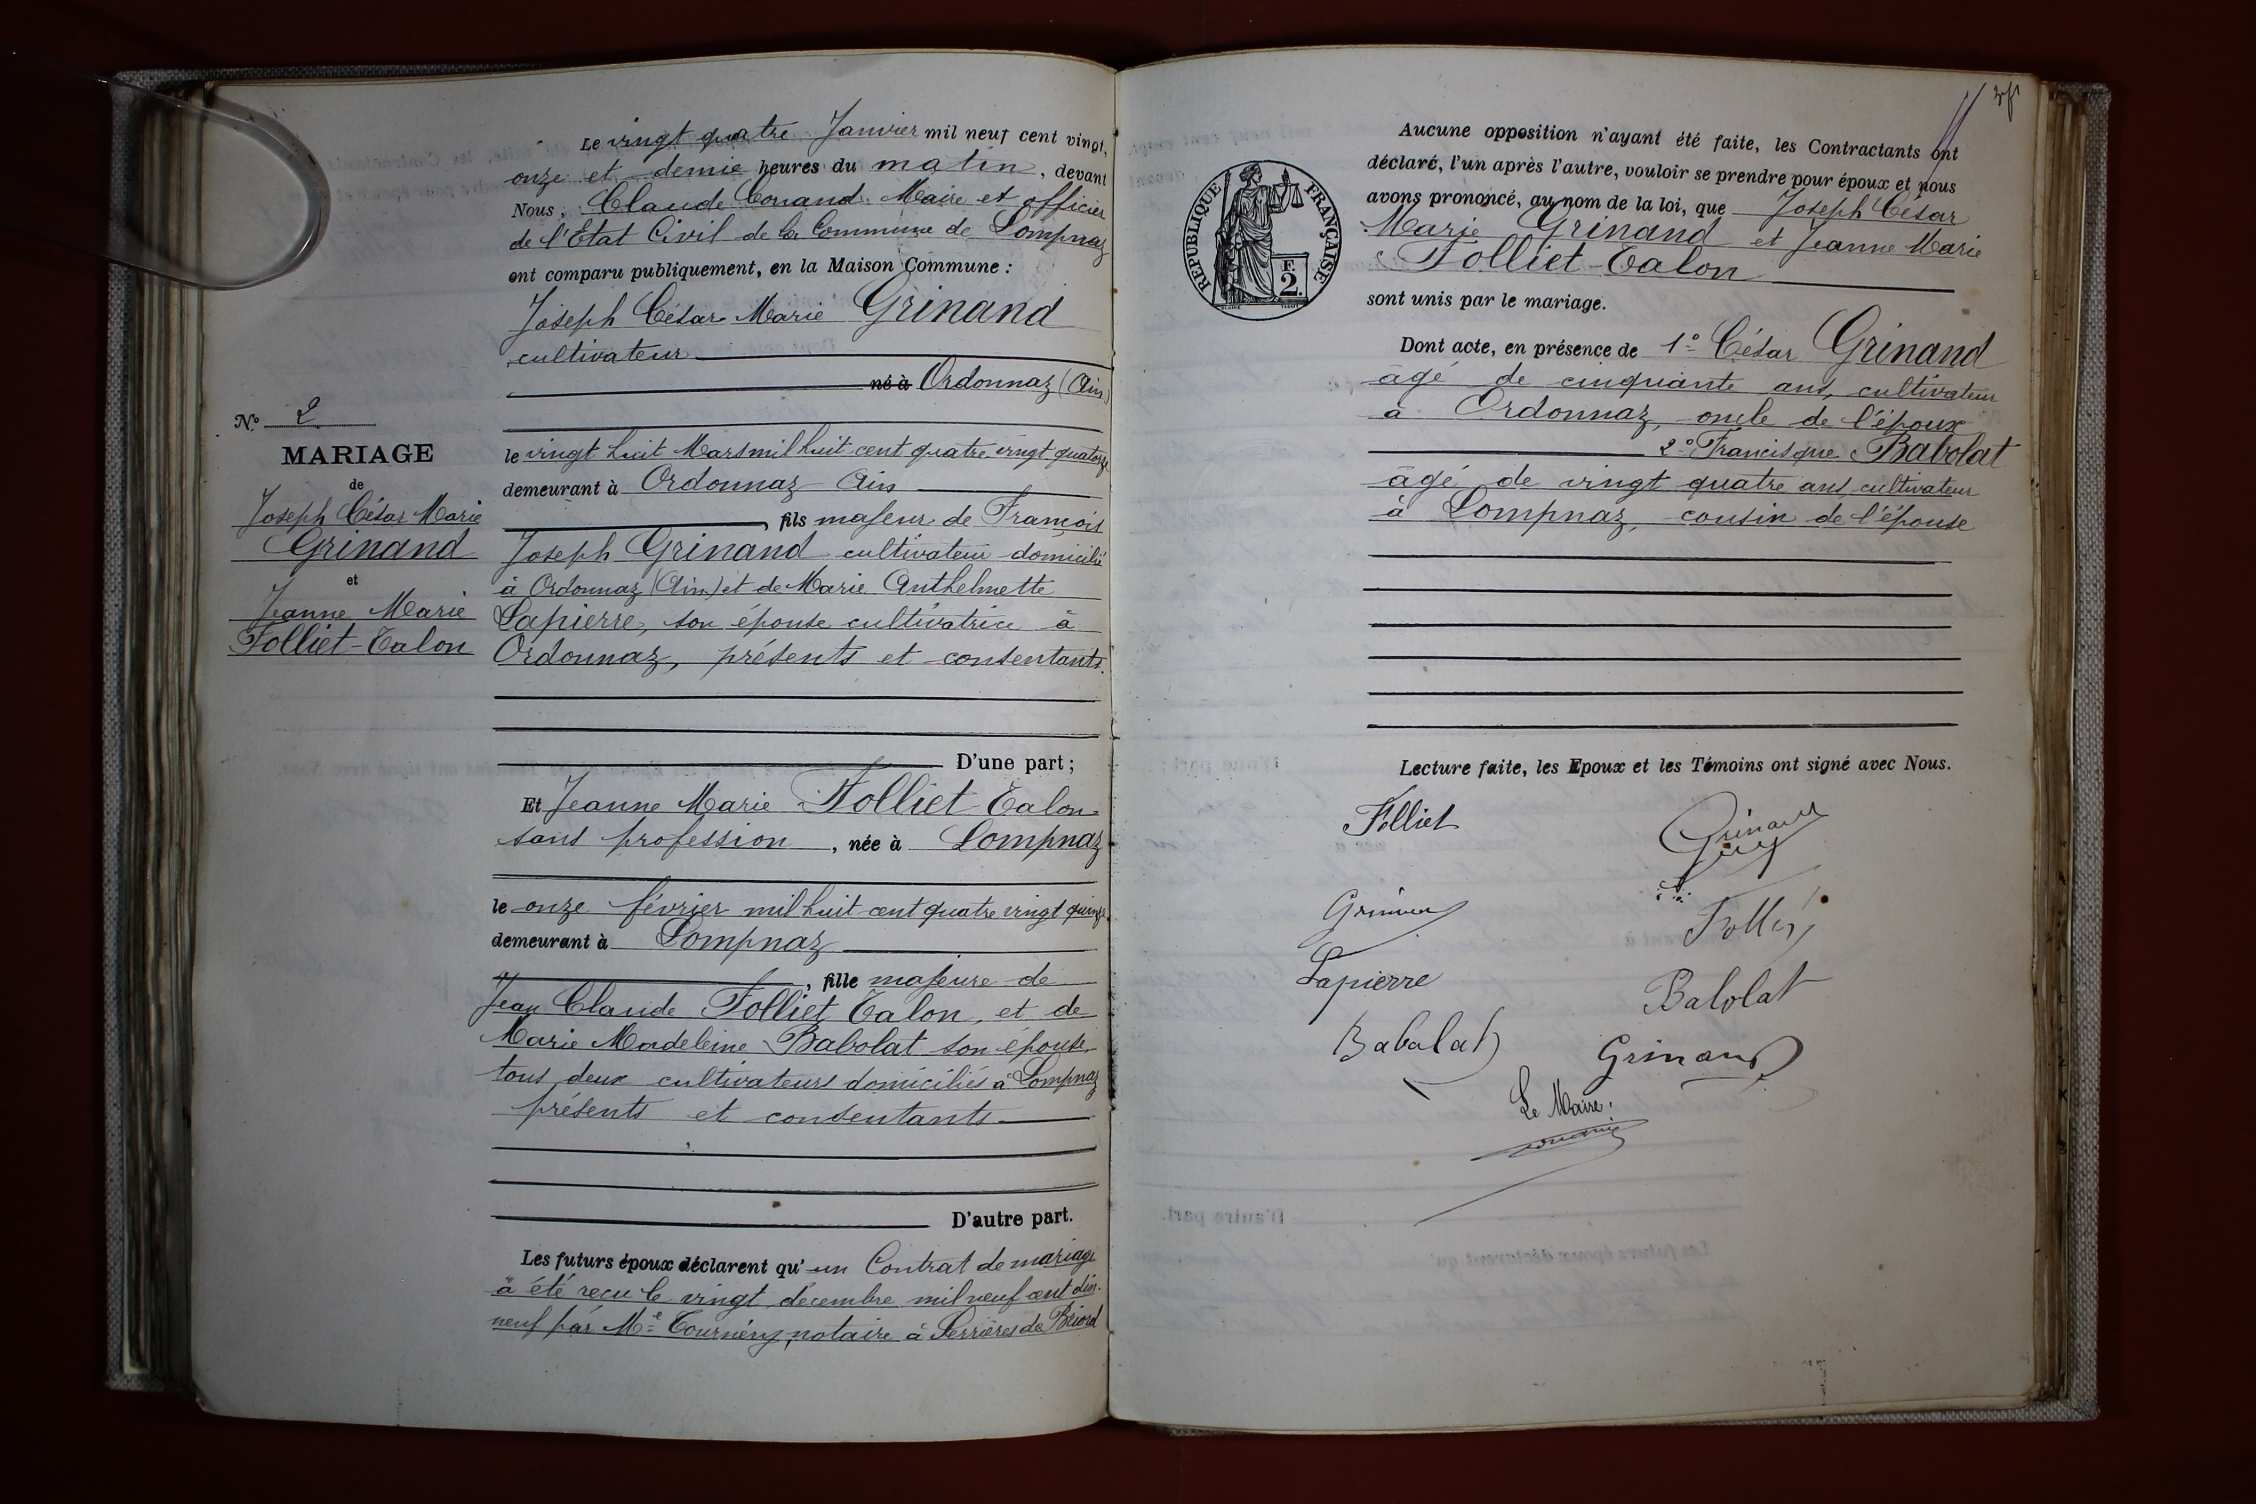 Le vingt quatre Janvier mil neuf cent vingt,
onze et demie heures du matin, devant
Nous, Claude Conand Maire et officier
de l'Etat Civil de la Commune de Lompnaz
ont comparu publiquement, en la Maison Commune :
Joseph César Marie Grinand
cultivateur
né à Ordonnaz (Ain)
le vingt huit Mars mil huit cent quatre vingt quatorze
demeurant à Ordonnaz Ain
, fils majeur de François
Joseph Grinand cultivateur domicilié
à Ordonnaz (Ain) et de Marie Anthelmette
Lapierre, son épouse cultivatrice à
Ordonnaz, présents et consentants.
D'une part ;
Et Jeanne Marie Folliet Talon
sans profession, née à Lompnaz
le onze février mil huit cent quatre vingt quinze
demeurant à Lompnaz
, fille majeure de
Jean Claude Folliet Talon, et de
Marie Madeleine Babolat son épouse
tous deux cultivateurs domiciliés à Lompnaz
présents et consentants
D'autre part.
Les futurs époux déclarent qu'un Contrat de mariage
à été reçu le vingt décembre mil neuf cent dix-
neuf par Me Tournéry, notaire à Serrières de Briord
N° 2
MARIAGE
de
Joseph César Marie
Grinand
et
Jeanne Marie
Folliet-Talon
REPUBLIQUE FRANÇAISE
F.
2.
Aucune opposition n'ayant été faite, les Contractants ont
déclaré, l'un après l'autre, vouloir se prendre pour époux et nous
avons prononcé, au nom de la loi, que Joseph César
Marie Grinand et Jeanne Marie
Folliet-Talon
sont unis par le mariage.
Dont acte, en présence de 1° César Grinand
âgé de cinquante ans, cultivateur
à Ordonnaz, oncle de l'époux
2° Francisque Babolat
âgé de vingt quatre ans, cultivateur
à Lompnaz, cousin de l'épouse
Lecture faite, les Epoux et les Témoins ont signé avec Nous.
Folliet
Grinand
Lapierre
Babolat
Babalat
Grinand
Le Maire.